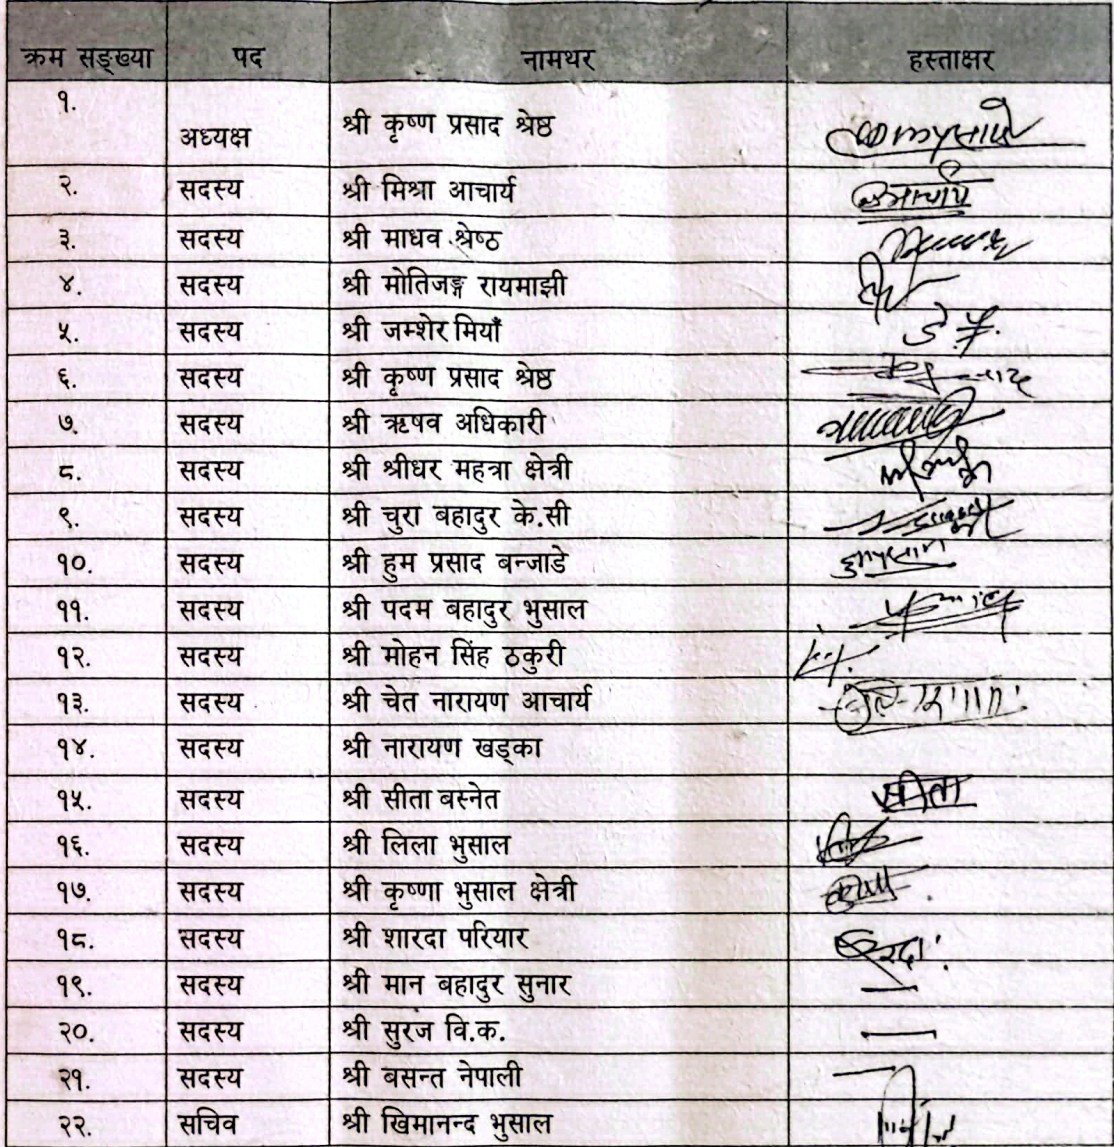 क्रम सङ्ख्या पद नामथर हस्ताक्षर
१. अध्यक्ष श्री कृष्ण प्रसाद श्रेष्ठ
२. सदस्य श्री मिश्रा आचार्य
३. सदस्य श्री माधव श्रेष्ठ
४. सदस्य श्री मोतिजङ्ग रायमाझी
५. सदस्य श्री जम्शेर मियाँ
६. सदस्य श्री कृष्ण प्रसाद श्रेष्ठ
७. सदस्य श्री ऋषव अधिकारी
८. सदस्य श्री श्रीधर महत्रा क्षेत्री
९. सदस्य श्री चुरा बहादुर के.सी
१०. सदस्य श्री हुम प्रसाद बन्जाडे
११. सदस्य श्री पदम बहादुर भुसाल
१२. सदस्य श्री मोहन सिंह ठकुरी
१३. सदस्य श्री चेत नारायण आचार्य
१४. सदस्य श्री नारायण खड्का
१५. सदस्य श्री सीता बस्नेत सीता
१६. सदस्य श्री लिला भुसाल
१७. सदस्य श्री कृष्णा भुसाल क्षेत्री
१८. सदस्य श्री शारदा परियार
१९. सदस्य श्री मान बहादुर सुनार
२०. सदस्य श्री सुरज वि.क.
२१. सदस्य श्री बसन्त नेपाली
२२. सचिव श्री खिमानन्द भुसाल